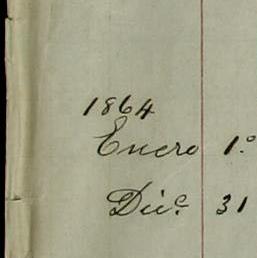 1864
Enero 1.º
Dic.e 31